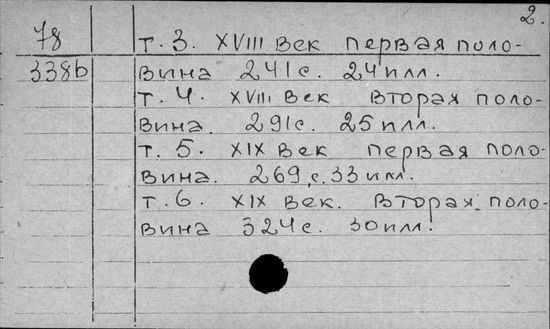 2.
78 т. 3. XVIII век первая поло-
338б вина 241с. 24 илл.
т. 4. XVIII век вторая поло-
вина. 291с. 25 илл.
т. 5. XIX век первая поло-
вина. 269 с. 33 илл.
т. 6. XIX век. вторая поло-
вина 324с. 30 илл.